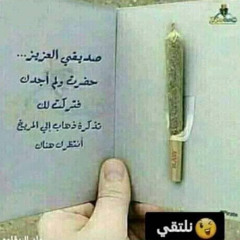 صديقي العزيز...
حضرت ولم أجدك
فتركت لك
تذكرة ذهاب إلى المريخ
أنتظرك هناك
نلتقي